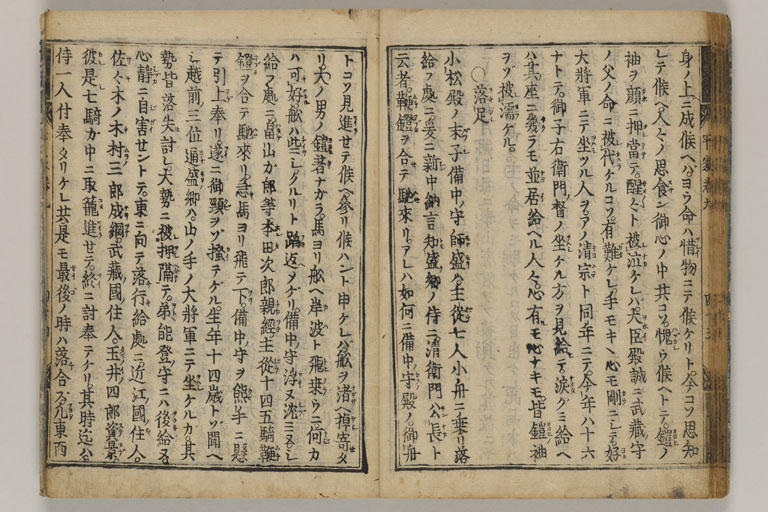 身ノ上ニ成候ヘハヨウ命ハ惜物ニテ候ケリト今コソ思知
レテ候ヘ人々ノ思食ン御心ノ中共コソ愧ウ候ヘトテ鎧ノ
袖ヲ顔ニ押當テ醒々ト被泣ケレハ大臣殿誠ニ武藏守
ノ父ノ命ニ被代ケルコソ有難ケレ手モキヽ心モ剛ニシテ好
大將軍ニテ坐ツル人ヲアノ清宗ト同年ニテ今年ハ十六
ナトテ御子右衛門督ノ坐ケル方ヲ見給テ淚クミ給ヘ
ハ其座ニ幾ラモ並居給ヘル人々心有モ心ナキモ皆鎧袖
ヲソ被濡ケル
○落足
小松殿ノ末子備中ノ守師盛公主從七人小舟ニ乗リ落
給フ處ニ爰ニ新中納言知盛卿ノ侍ニ清衛門公長ト
云者鞭鐙ヲ合テ馳來リアレハ如何ニ備中守殿ノ御舟
トコソ見進セテ候ヘ參リ候ハント申ケレハ舩ヲ渚ヘ掉寄タ
リ大ノ男ノ鎧著ナカラ馬ヨリ舩ヘ岸波ト飛乗ウニ何カ
ハ可好舩ハ些シクルリト踏返ヲケリ備中守浮ヌ沈ミヌシ
給フ處ニ畠山カ郎等本田次郎親經主從十四五騎鞭
鐙ヲ合テ馳來リ急馬ヨリ飛テ下備中守ヲ熊手ニ懸
テ引上奉リ遂ニ御頸ヲソ搔テケル生年十四歳トソ聞ヘ
シ越前三位通盛卿ハ山ノ手ノ大將軍ニテ坐ケルカ其
勢皆落失討レ大勢ニ被押隔テ弟能登守ニハ後給ヌ
心靜ニ自害セントテ東ニ向テ落行給處ニ近江國住人
佐々木ノ木村三郎成綱武藏國住人玉井四郎資景
彼是七騎カ中ニ取籠進セテ終ニ討奉テケリ其時迄ハ
侍一人付奉タリケレ共是モ最後ノ時ハ落合ス凡東西
平家巻九